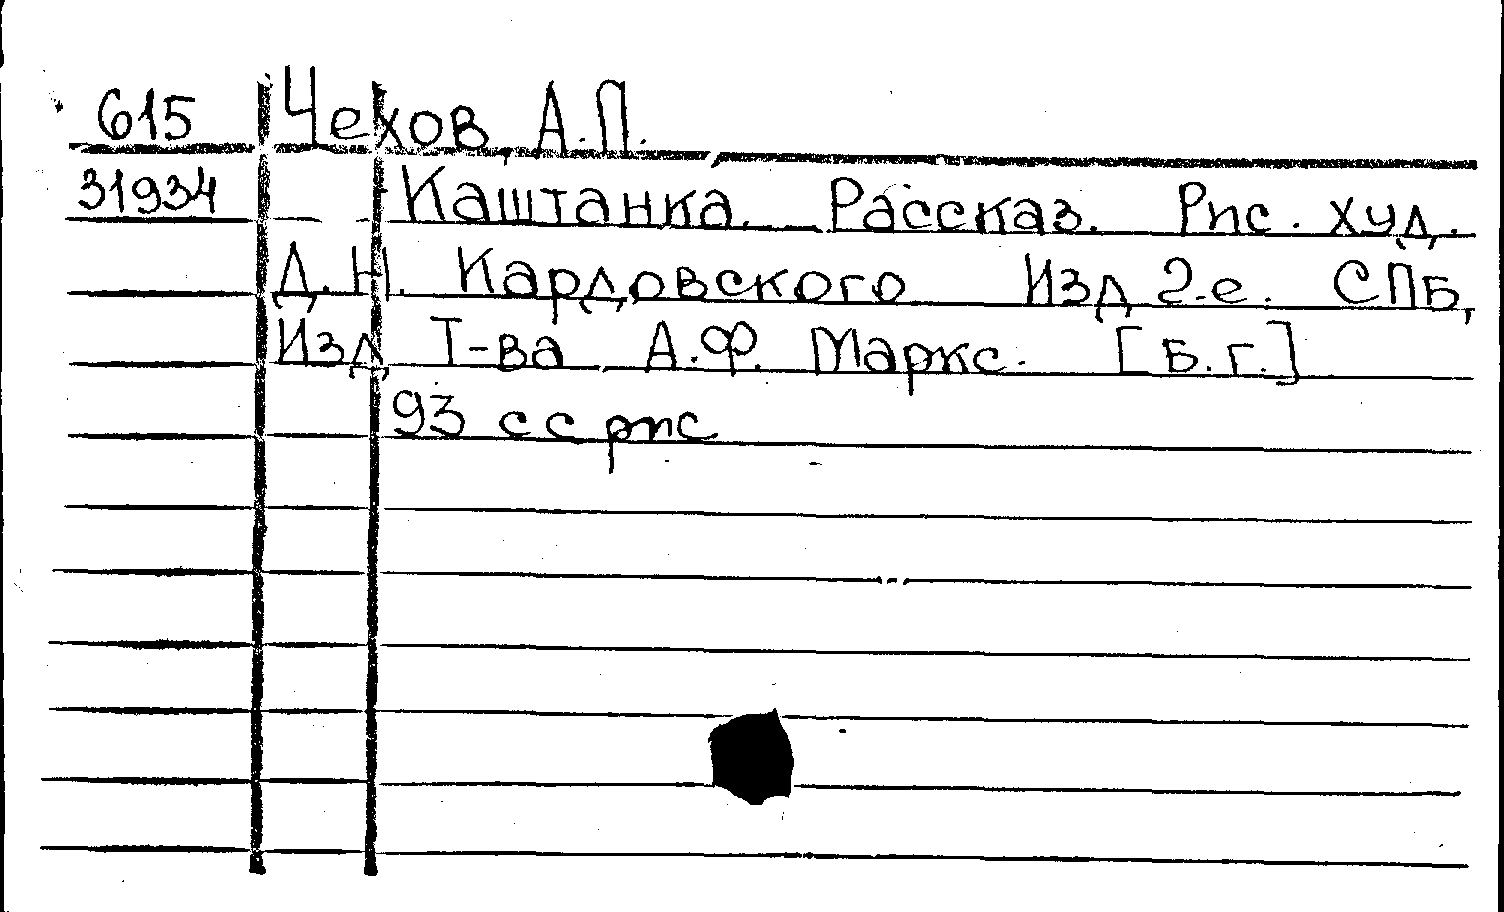 615 Чехов, А.П.
31934 Каштанка. Рассказ. Рис. худ.
Д.Н. Кардовского Изд 2-е. СПБ,
Изд Т-ва А.Ф. Маркс. [Б.г.]
93 с с рис